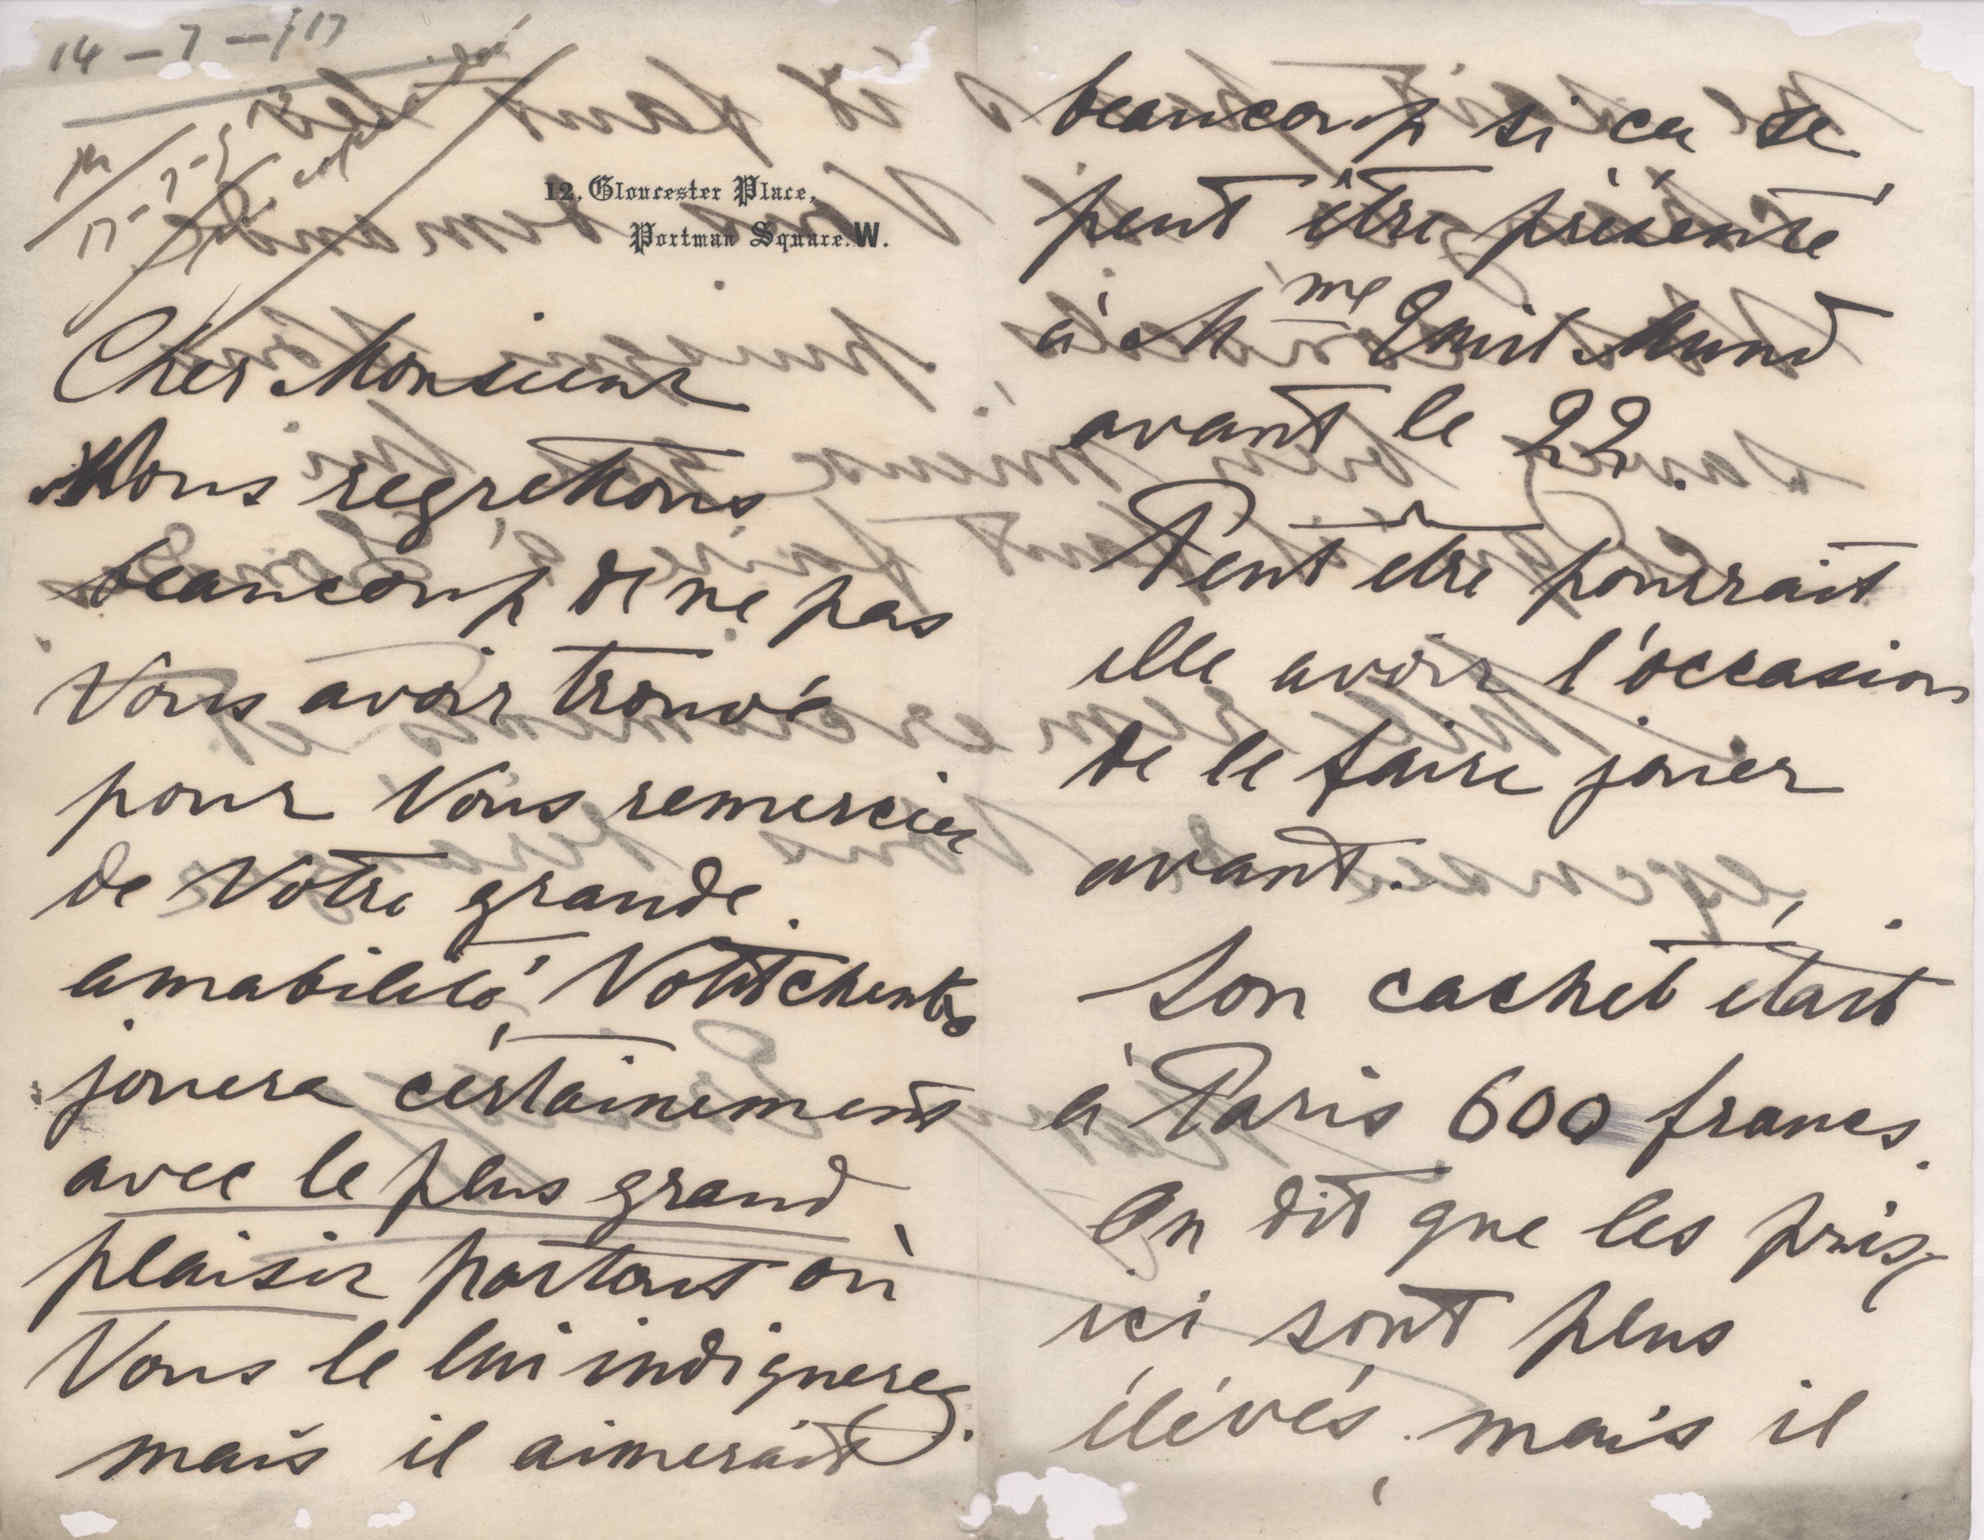 14 - 7 - /17
12, Gloucester Place,
Portman Square. W.
Cher Monsieur
Nous regrettons
beaucoup de ne pas
Vous avoir trouvé
pour Vous remercier
de Votre grande
amabilité,
jouera certainement
avec le plus grand
plaisir partout où
Vous le lui indiquerez
mais il aimerait
beaucoup si ca se
peut être présenté
à Mme Mund
avant le 22.
Peut etre pourrait
elle avoir l'occasion
de le faire jouer
avant.
Son cachet était
à Paris 600 francs.
On dit que les prix
ici sont plus
élévés, mais il